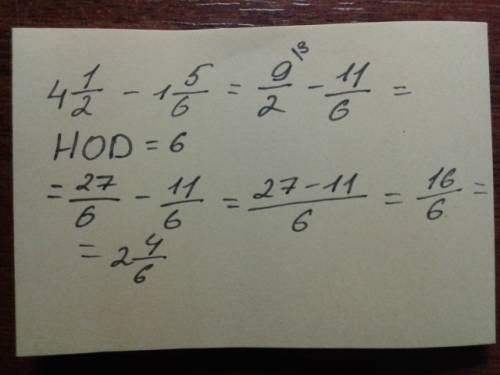 4 1/2 - 1 5/6 = 9/2 \3 - 11/6 =
НОД = 6
= 27/6 - 11/6 = 27-11/6 = 16/6 =
= 2 4/6